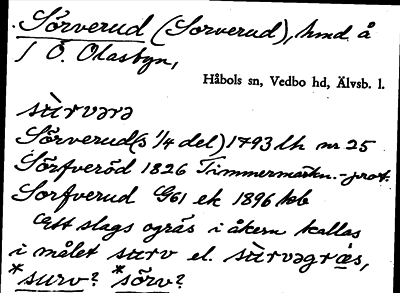 Sörverud (Sorverud), hmd å
/ Ö. Olasbyn,
Håbols sn, Vedbo hd, Älvsb. l.
sùrvərə
Sörverud(s 1/4 del) 1793 lh nr 25
Sörfveröd 1826 Timmermärkn.-prot.
Sorfverud G61 ek 1896 kb
Ett slags ogräs i åkern kallas
i målet surv el. sùrvəgræs,
*surv? *sörv?